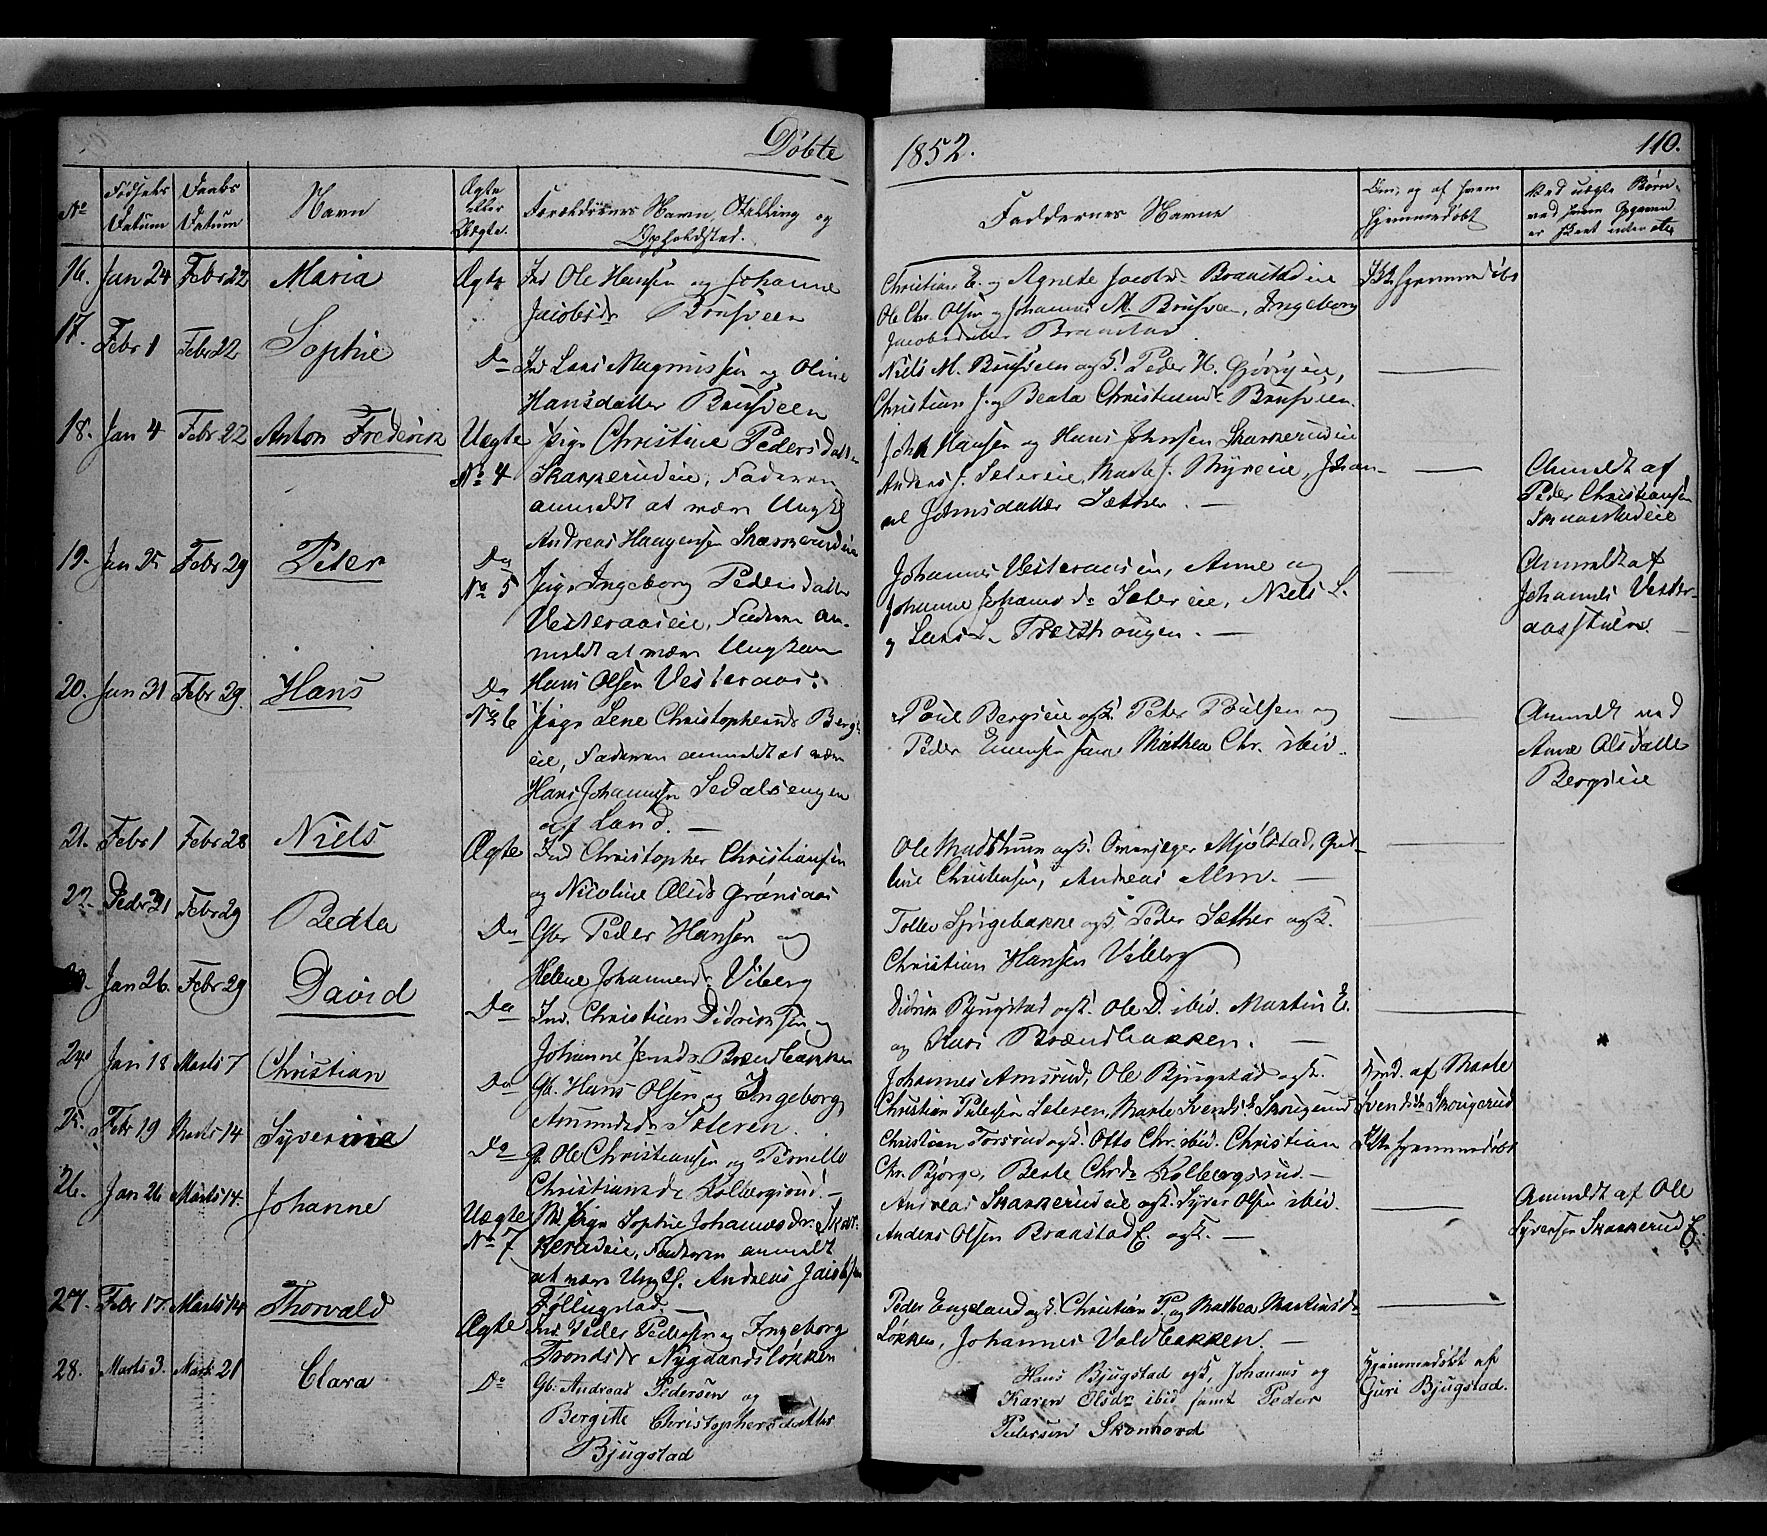 Döbte
1852.
110.
No
Fødsels Datum
Daabs Datum
Navn
Ægte eller Uægte.
Forældrenes Navn, Stilling og Opholdsted.
Faddernes Navne
Om, og af hvem hjemmedøbt
16. Jan 24 Febr 22 Maria Ægte Ind Ole Hansen og Johanne
Jacobsdr Brusveen
Christian E. og Agnete Jacobsdr Braastadeie
Ole Chr. Olsen og Johannes M. Brusveen, Ingeborg
Jacobsdatter Braastad
Ikke hjemmedøbt
17. Febr 1 Febr 22 Sophie Do Ind Lars Magnussen og Oline
Hansdatter Brusveen
Niels M. Brusveen ogsk. Peder H.
Christian J. og Beata Christiansdr Brusveen.
18. Jan 4 Febr 22 Anton Frederik Uægte No 4 Pige Christine Pedersdatter
Skakkerudeie, Faderen
anmeldt at være Ungk.
Andreas Haagensen Skakkerudeie
Johan Hansen og Hans Johnsen Skakkerudeie
Anders J. Sætereie, Marte J. Byreie, Johan-
ne Johnsdatter Sæther. —
Anmeldt af
Peder Christiansen
19. Jan 25 Febr 29 Peter Do No 5 Pige Ingeborg Pedersdatter
Vesteraaseie, Faderen an-
meldt at være Ungkarl
Hans Olsen Vesteraas.
Johannes Vesteraasen, Anne og
Johanne Johansdr Sætereie, Niels L.
og Lars L. Præsthaugen. —
Anmeldt af
Johannes Vester-
aas
20. Jan 31 Febr 29. Hans Do No 6 Pige Lene Christophersdr Bergs-
eie, Faderen anmeldt at være
Hans Johannesen Sedalsengen
af Land. —
Poul Bergseie ogsk. Peter Poulsen og
Peder Mathea Chr. ibid.
Anmeldt ved
Anne Olsdatter
Bergseie
21. Febr 1 Febr 28 Niels Ægte Ind Christopher Christiansen
og Nicoline Olsdr Grønaas
Ole Madshuus ogsk. Mjølstad, Gud-
Christensen, Andreas Alm. —
22. Decbr 31 Febr 29 Bedta Do Peder Hansen og
Helene Johannesdr Viberg
Tollev Springebakke ogsk. Peder Sæther ogsk.
Christian Hansen Viberg
Jan 26. Febr 29 David Do Ind. Christian Didriksen og
Johanne Jensdr Brændbakken
Didrik Bjugstad ogsk. Ole D. ibid. Martin E.
og Kari Brændbakken. —
24. Jan 18 Marts 7 Christian Do Gb. Hans Olsen og Ingeborg
Amundsdr Sæteren.
Johannes Amsrud, Ole Bjugstad ogsk.
Christian Pedersen Sæteren, Marte Svendsdr Skougerud
Hmd. af Marte
Svendsdr Skougerud
25. Febr 19 Marts 14 Syverine Do Gb Ole Christiansen og Pernille
Christiansdr Kolbergsrud. —
Christian Torsrud ogsk. Otto Chr. ibid. Christian
Chr. Bjørge, Beate Chrdr Kolbergsrud. —
Ikke hjemmedøbt
26. Jan 26 Marts 14. Johanne Uægte No 7 Pige Sophie Johannesdr Skak-
kerudeie, Faderen anmeldt
at være Ungk. Andreas Jacobsen
Follugstad. —
Andreas Skakkerudeie ogsk. Syver Olsen ibid.
Anders Olsen Braastad E. ogsk. —
Anmeldt af Ole
Syversen Skakkerud E.
27. Febr 17. Marts 14 Thorvald Ægte Ind. Peder Pedersen og Ingeborg
Trondsdr Nygaardsløkken
Peder Engeland ogsk. Christian P. og Mathea Martinsdr
Løkken, Johannes Voldbakken. —
28. Marts 3. Marts 21 Clara Do Gb. Andreas Pedersen og
Bergitte Christophersdatter
Bjugstad
Hans Bjugstad ogsk, Johannes og
Karen Olsdr ibid samt Peder
Pedersen Skonnord
Hjemmedøbt af
Guri Bjugstad.